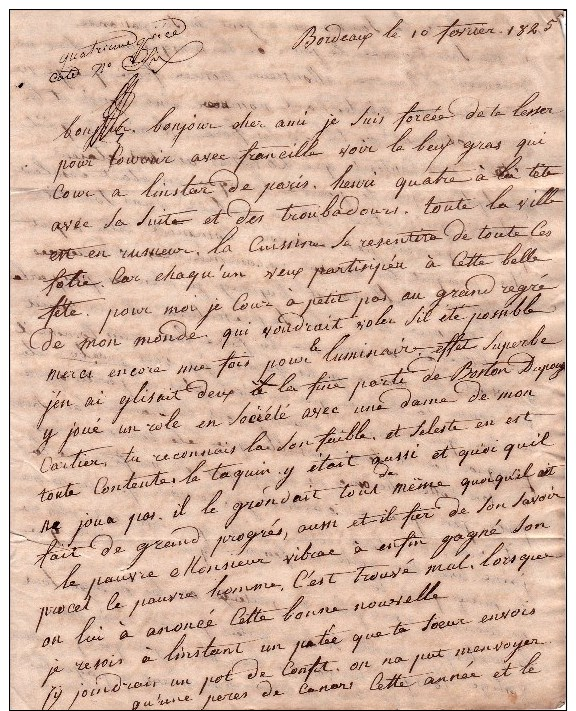 Bordeaux le 10 fevrier. 1825
quatrieme piece
bonjour cher ami je suis forcée de te lesser
pour courrir avec francille voir le beuf gras qui
cour a linstar de paris. henri quatre à la tete
avec sa suite et des troubadours. toute la ville
est en rumeur. la cuissine se resentira de toute ces
folie. Car chaqu'un veux partisipér à cette belle
fête. pour moi je cour à petit pas au grand regré
de mon monde. qui voudrait voler sil ete possible
merci encore une fois pour le luminair effet superbe
j'en ai glisait deux à la fine parti de Boston Dupouy
y joué un rôle en société avec une dame de mon
Cartier, tu reconnais la son faible. et seleste en est
toute contente. le taquin y était aussi et quoi quil
ne joua pas. il le grondait tous de même quoiqu'il ait
fait de grand progrés, aussi et il fier de son savoir
le pauvre Monsieur vibrac à enfin gagné son
procet le pauvre homme. C'est trouvé mal. lorsque
on lui à anoncé cette bonne nouvelle
je resois à linstant un patée que ta soeur envois
j'y joindrai un pot de confit. on na put menvoyer
qu'une peres de canars cette année et le